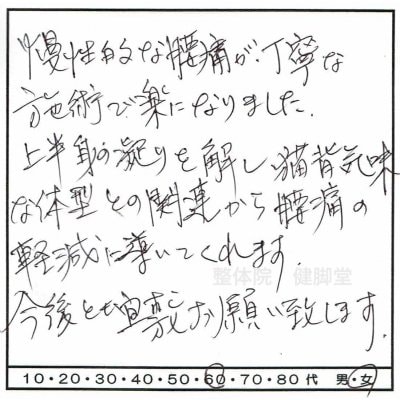 慢性的な腰痛が、丁寧な
施術で楽になりました。
上半身の凝りを解し、猫背気味
な体型との関連から腰痛の
軽減に導いてくれます。
整体院 健脚堂
今後とも宜敷お願い致します。
10・20・30・40・50・60・70・80 代 男・女